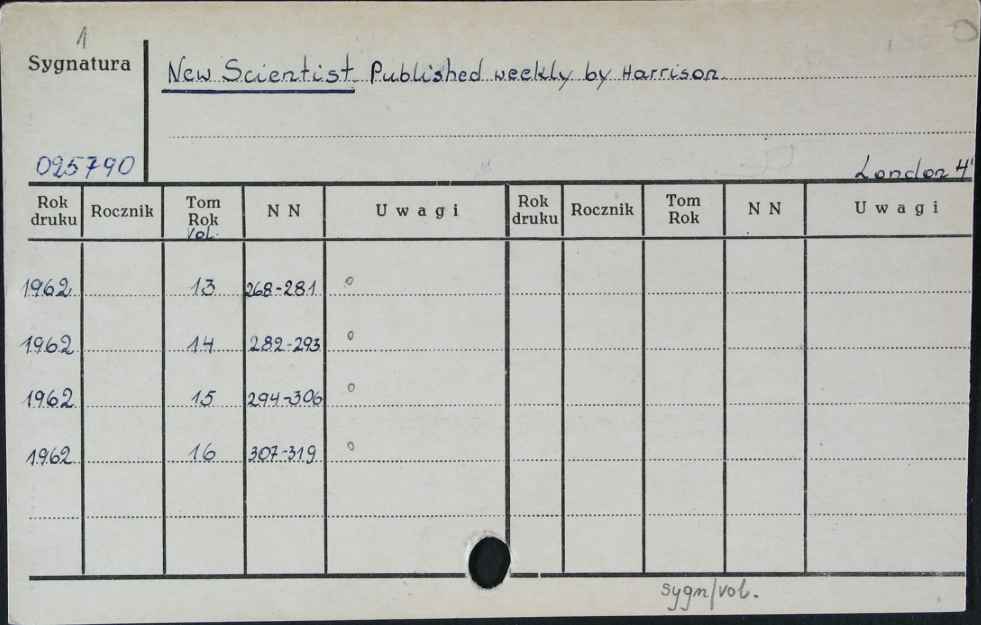 1
Sygnatura
New Scientist. Published weekly by Harrison.
025790
London 4°
Rok druku Rocznik Tom Rok Vol. N N Uwagi Rok druku Rocznik Tom Rok N N Uwagi
1962 13 268-281 o
1962 14 282-293 o
1962 15 294-306 o
1962 16 307-319 o
sygn/vol.